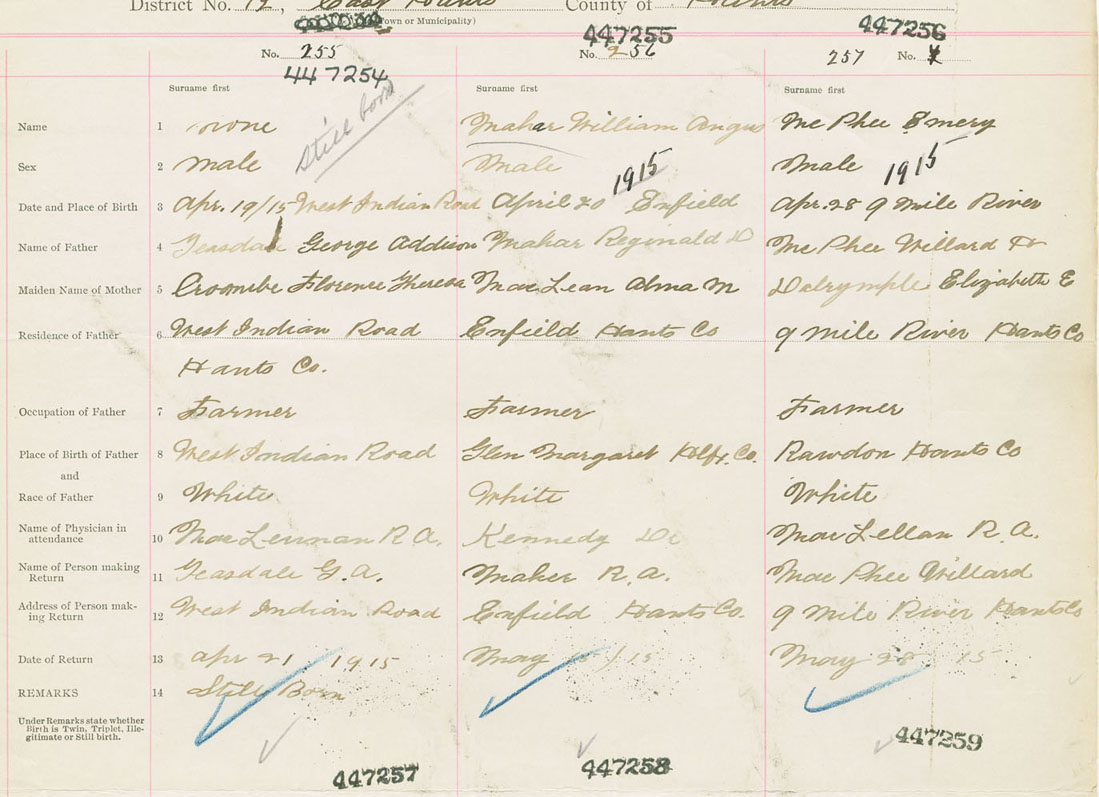 District No. 12, East Hants County of Hants
(Town or Municipality)
447255 447256
No. 255 No. 256 257 No.
447254
Surname first Surname first Surname first
Still born
Name 1 None Mahar William Angus Mc Phee Emery
Sex 2 Male Male Male
1915 1915
Date and Place of Birth 3 Apr. 19/15 West Indian Road April 20 Enfield Apr. 28 9 Mile River
Name of Father 4 Teasdale George Addison Mahar Reginald Mc Phee Willard
Maiden Name of Mother 5 Croombe Florence Theresa MacLean Alma M Dalrymple Elizabeth E
Residence of Father 6 West Indian Road Enfield Hants Co 9 Mile River Hants Co
Hants Co.
Occupation of Father 7 Farmer Farmer Farmer
Place of Birth of Father 8 West Indian Road Glen Margaret Hlfx. Co. Rawdon Hants Co
and
Race of Father 9 White White White
Name of Physician in
attendance 10 MacLennan R A. Kennedy MacLellan R. A.
Name of Person making
Return 11 Teasdale G. A. Maher R. A. Mac Phee Willard
Address of Person mak-
ing Return 12 West Indian Road Enfield Hants Co. 9 Mile River Hants Co
Date of Return 13 Apr 21 1915 May /15 May 28 15
REMARKS 14 Still Born
Under Remarks state whether
Birth is Twin, Triplet, Ille-
gitimate or Still birth.
447257 447258 447259